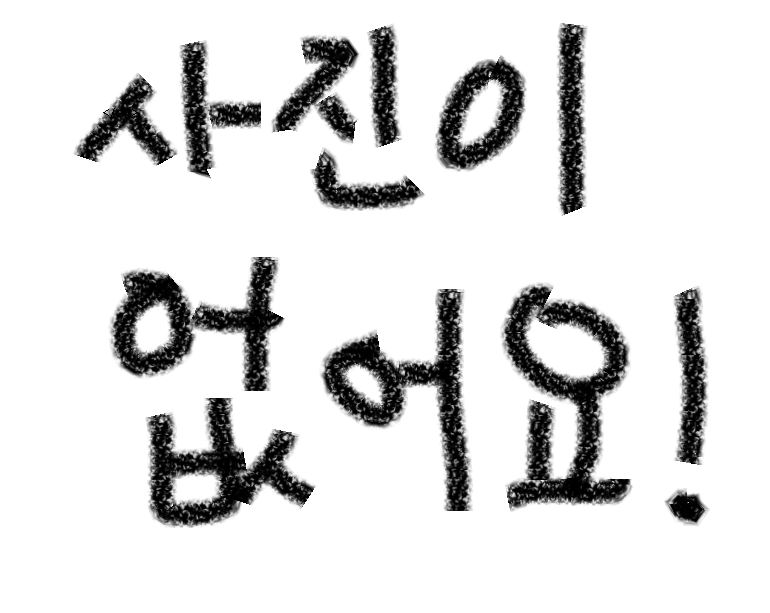 사진이
없어요!